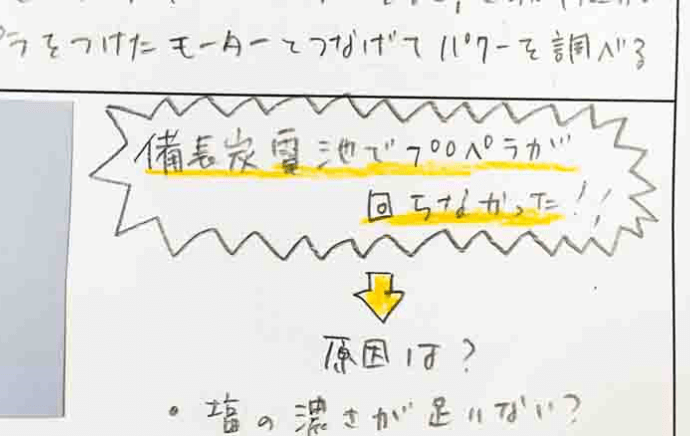 ラをつけたモーターとつなげてパワーを調べる
備長炭電池でプロペラが
回らなかった!!
原因は?
・塩の濃さが足りない?